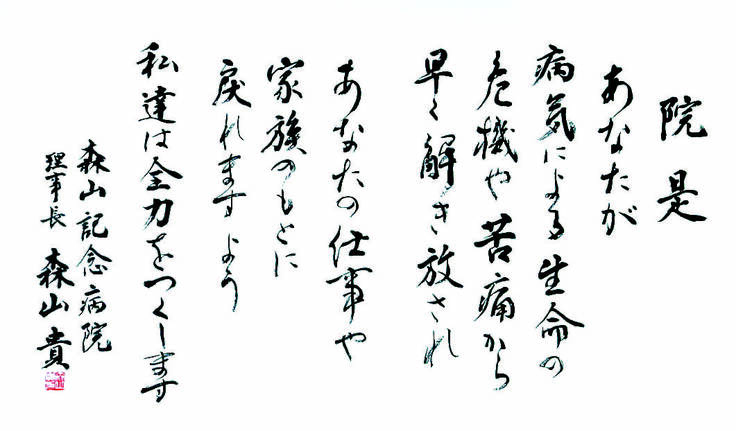 院是
あなたが
病気による生命の
危機や苦痛から
早く解き放され
あなたの仕事や
家族のもとに
戻れますよう
私達は全力をつくします
森山記念病院
理事長 森山貴